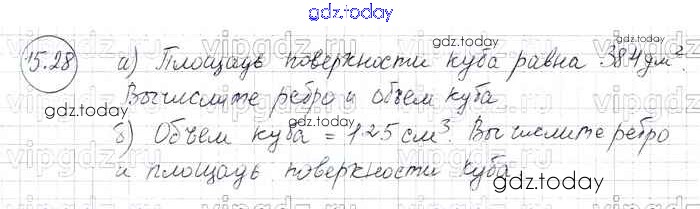 gdz.today
15.28 а) Площадь поверхности куба равна 384 дм².
gdz.today
Вычислите ребро и объем куба
gdz.today
б) Объем куба = 125 см³. Вычислите ребро
и площадь поверхности куба.
gdz.today